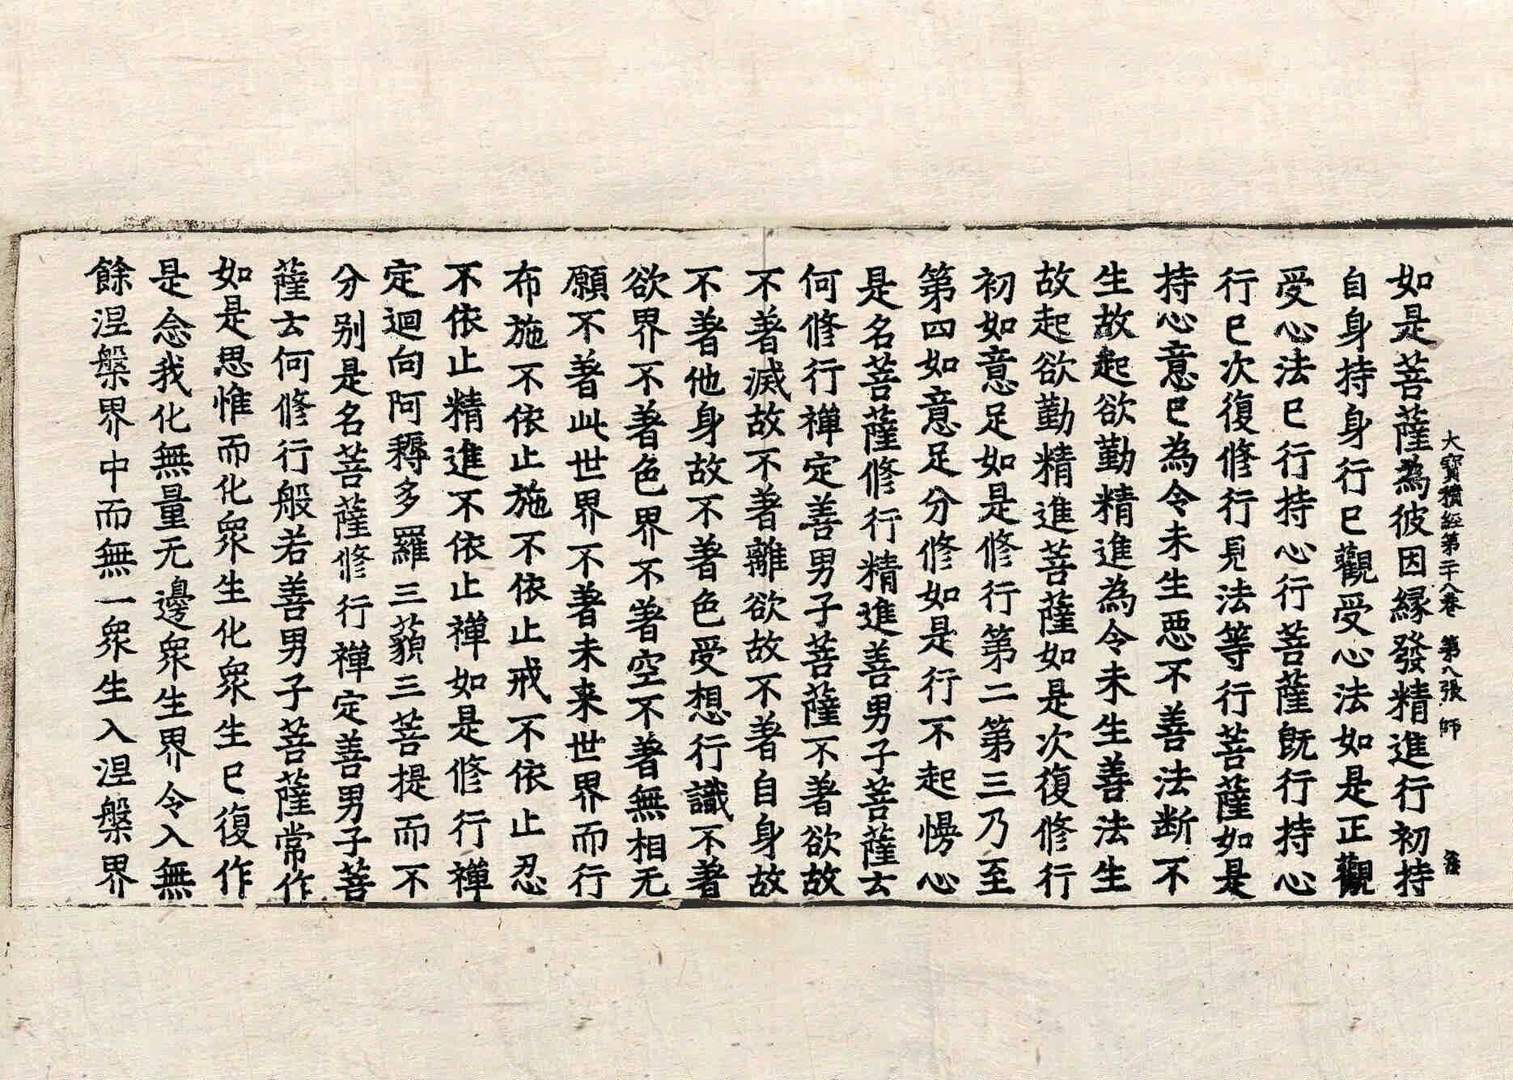 大寶積經第二十八卷 第八張 師
如是菩薩為彼因緣發精進行初持
自身持身行已觀受心法如是正觀
受心法已行持心行菩薩旣行持心
行已次復修行見法等行菩薩如是
持心意已為令未生惡不善法断不
生故起欲勤精進為令未生善法生
故起欲勤精進菩薩如是次復修行
初如意足如是修行第二第三乃至
第四如意足分修如是行不起慢心
是名菩薩修行精進善男子菩薩云
何修行禪定善男子菩薩不著欲故
不著滅故不著離欲故不著自身故
不著他身故不著色受想行識不著
欲界不著色界不著空不著無相无
願不著此世界不著未来世界而行
布施不依止施不依止戒不依止忍
不依止精進不依止禪如是修行禪
定迴向阿耨多羅三藐三菩提而不
分別是名菩薩修行禪定善男子菩
薩云何修行般若善男子菩薩常作
如是思惟而化衆生化衆生已復作
是念我化無量无邊衆生界令入無
餘涅槃界中而無一衆生入涅槃界